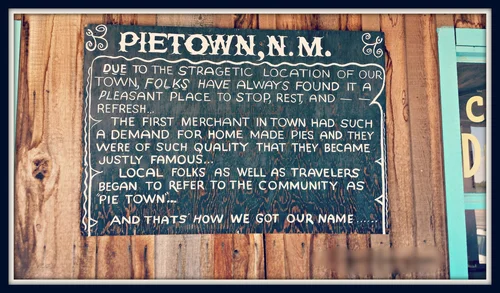 PIETOWN, N.M.
DUE TO THE STRAGETIC LOCATION OF OUR
TOWN, FOLKS HAVE ALWAYS FOUND IT A
PLEASANT PLACE TO STOP, REST, AND — —
REFRESH...
THE FIRST MERCHANT IN TOWN HAD SUCH
A DEMAND FOR HOME MADE PIES AND THEY
WERE OF SUCH QUALITY THAT THEY BECAME
JUSTLY FAMOUS...
LOCAL FOLKS AS WELL AS TRAVELERS
BEGAN TO REFER TO THE COMMUNITY AS
'PIE TOWN'...
AND THATS' HOW WE GOT OUR NAME......
C
D